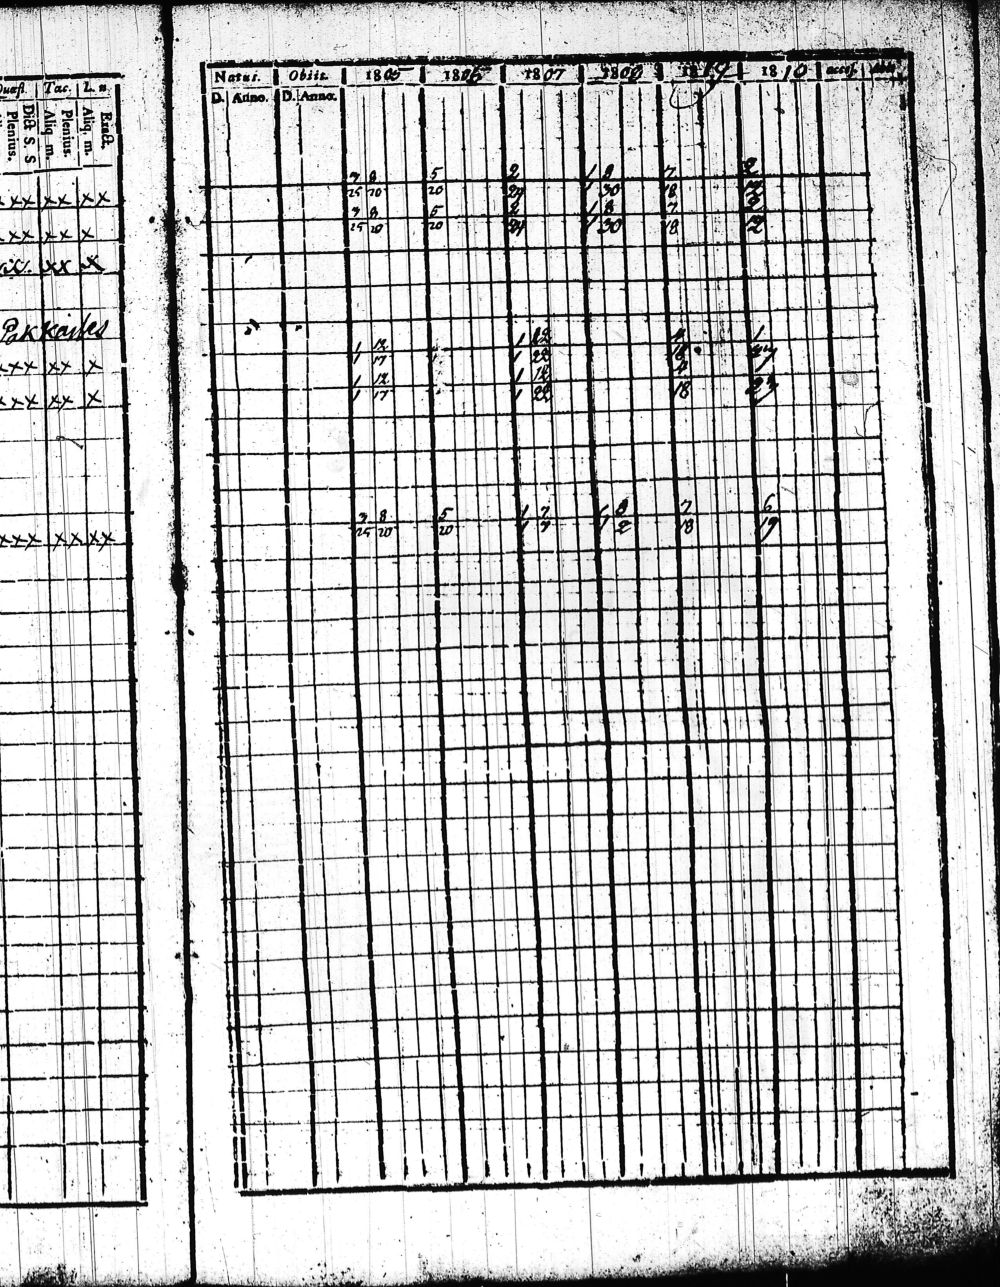 Quæst. Tac. L. n
Plenius. Dict. S. S Aliq. m. Plenius. Aliq. m. Exact.
xxx xx xx
xxx xx x
xx x
xxx xx x
xxx xx x
xxx xx xx
Natus. Obiit. 1805 1806 1807 1809 1810 access. abiit
D. Anno. D. Anno.
3 8 5 2 1 8 7 2
25 20 20 24 1 30 18 12
3 8 5 2 1 8 7 2
25 20 20 24 1 30 18 12
1 12 1 12 4 1
1 17 1 22 18
1 12 1 12 4
1 17 1 22 18
3 8 5 1 7 1 8 7 6
25 20 20 1 7 1 2 18 19